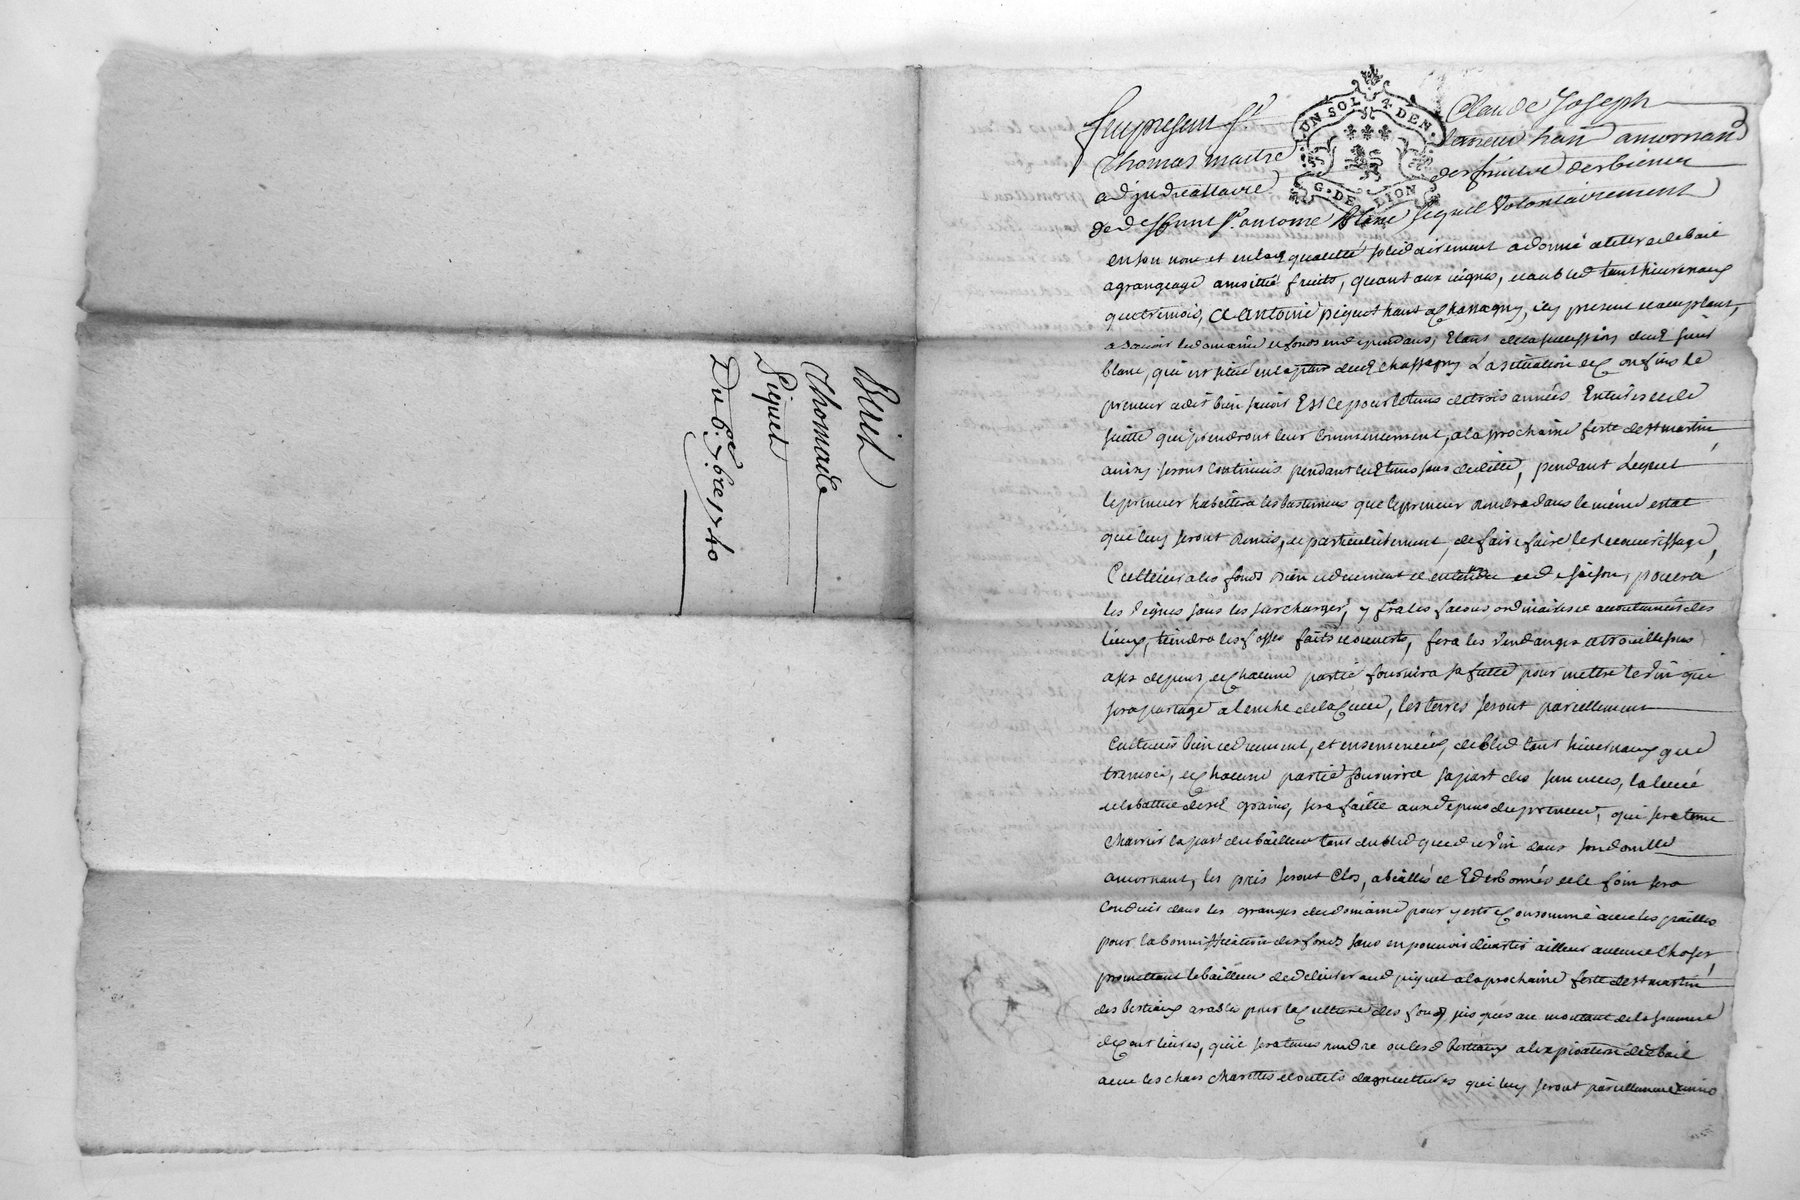 Bail
Thomas
Piquet
Du 6.e 7.bre 1740
UN SOL 4 DEN.
G. DE LION
fut present Sr Claude Joseph
Thomas maitre hant a mornand
adjudicattaire des fruits des biens
de deffunt Sr. antoine Blanc lequel Volontairement
en son nom et en lad qualitté solidairement a donné a titre de bail
a grangeage a moittié fruits, quant aux vignes, et au bled tant hivernaux
que tremois, a Antoine piquet hant a Chassagny, icy present et acceptant,
a scavoir le domaine et fonds en dependans, Etans de la succession dud sieur
blanc, qui est situé en la dud Chassagny La situation et Confins le
preneur a dit bien scavoir Est ce pour le tems de trois années Entieres et de
suitte qui prendront leur Commencement, a la prochaine feste de st martin
ainsy seront continués pendant led tems sans , pendant Lequel
le preneur habittera les bastimens que le preneur rendra dans le même estat
qui luy seront remis, et particulierement, de faire faire le recouvrissage,
Cultivera les fonds bien et duement et en saison,
les vignes sans les surcharger, y fra les facons ordinaires et accoutumées des
lieux, tiendra les fossés faits et ouverts, fera les vendanges
a ses depens, et Chacune partie fournira sa futte pour mettre le vin qui
sera partagé a l'anche de la Cuve, les terres seront pareillement
Cultivés bien et duement, et ensemencés, de bled tant hivernaux que
tremois, et Chacune partie fournira sa part des semences, la levée
et la battue desd grains, sera faitte aux depens du preneur, qui sera tenu
charrier la part du bailleur tant du bled que du vin dans son domille
a mornant, les prés seront Clos, abeallés et Ederbonnés et le foin sera
conduit dans les granges du domaine pour y estre Consommé avec les pailles
pour la bonniffication des fonds sans en pouvoir divertir ailleur aucune Choses,
promettant le bailleur de delivrer aud piquet a la prochaine feste de st martin
des bestiaux arables pour la Culture des fonds, jusques au montant de la somme
de Cent livres, qu'il sera tenus rendre ou lesd bestiaux a l'expiration dud bail
avec les chars charettes et outils d'agricultures qui luy seront pareillement remis